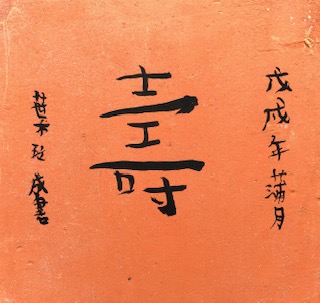 戊戌年蒲月
壽
葉書